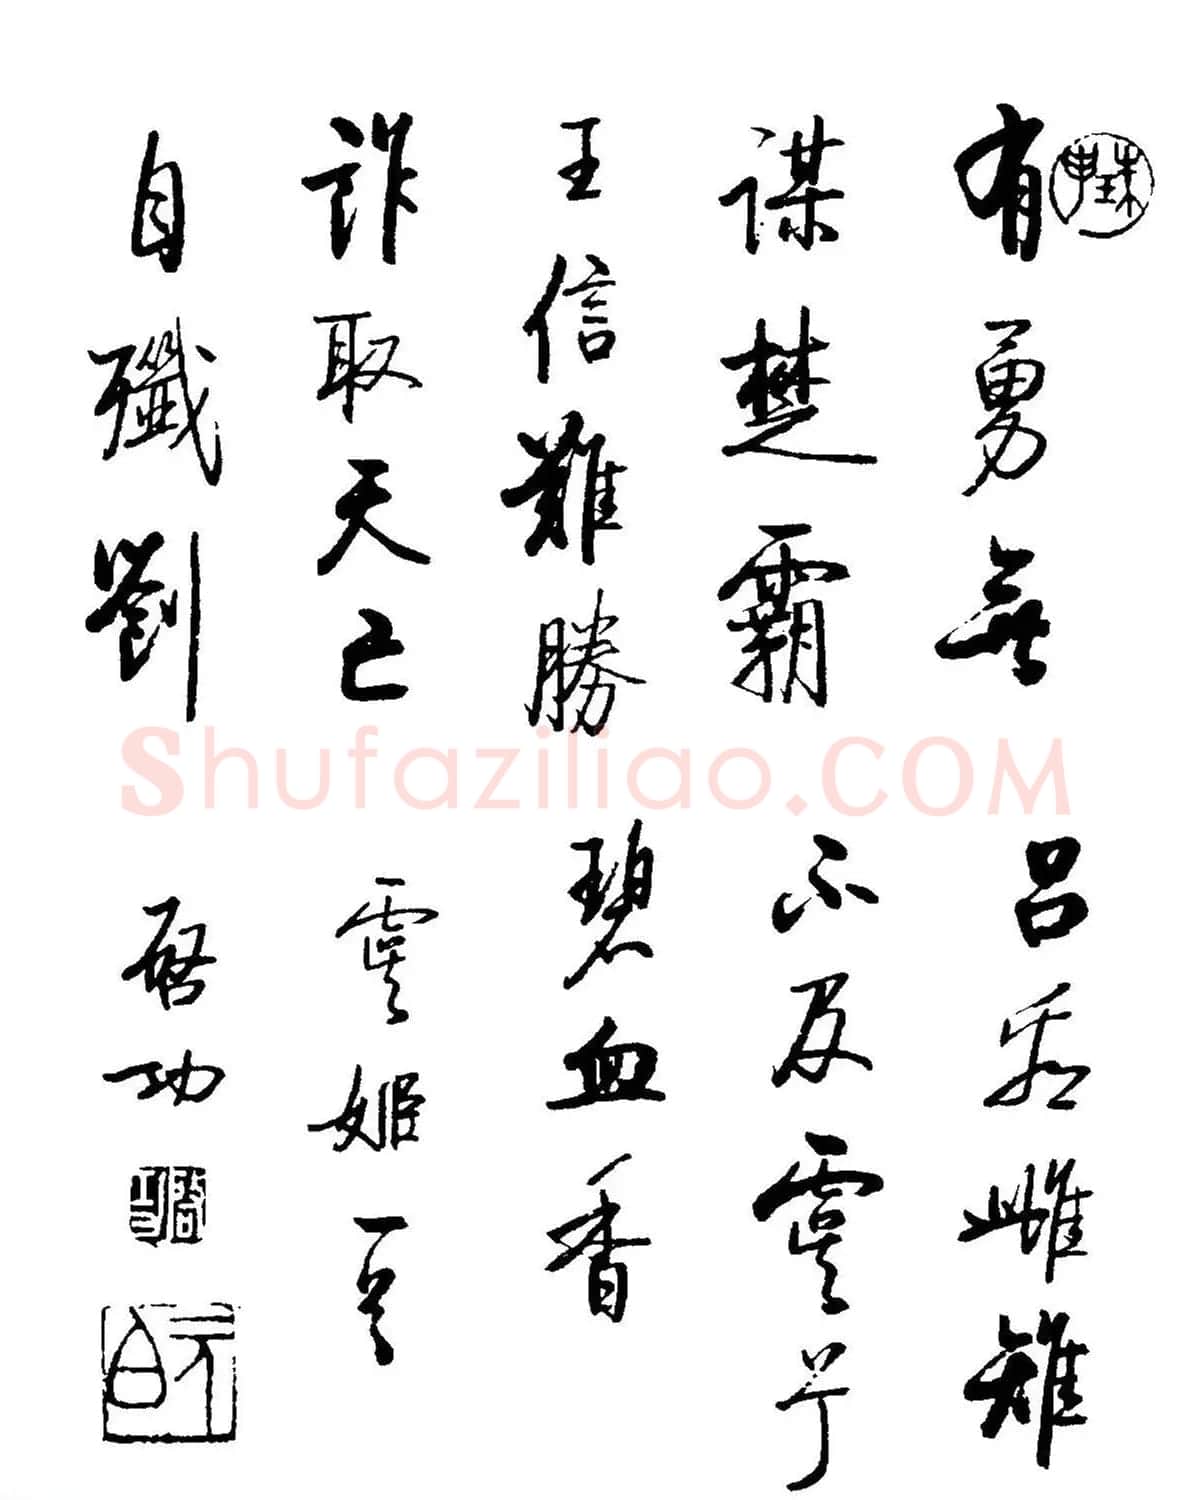 有勇無
謀楚霸
王信難勝
詐取天亡
自殲劉
呂看雌雉
不及虞兮
碧血香
虞姬
啟功
Shufaziliao.COM